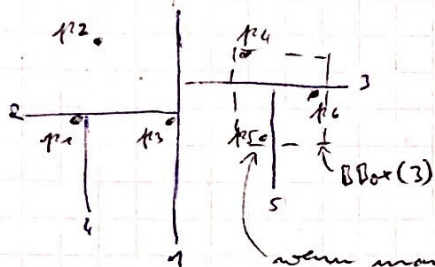 p2
p4
3
2
p1
p3
p5
p6
BBox(3)
4
5
1
wenn man